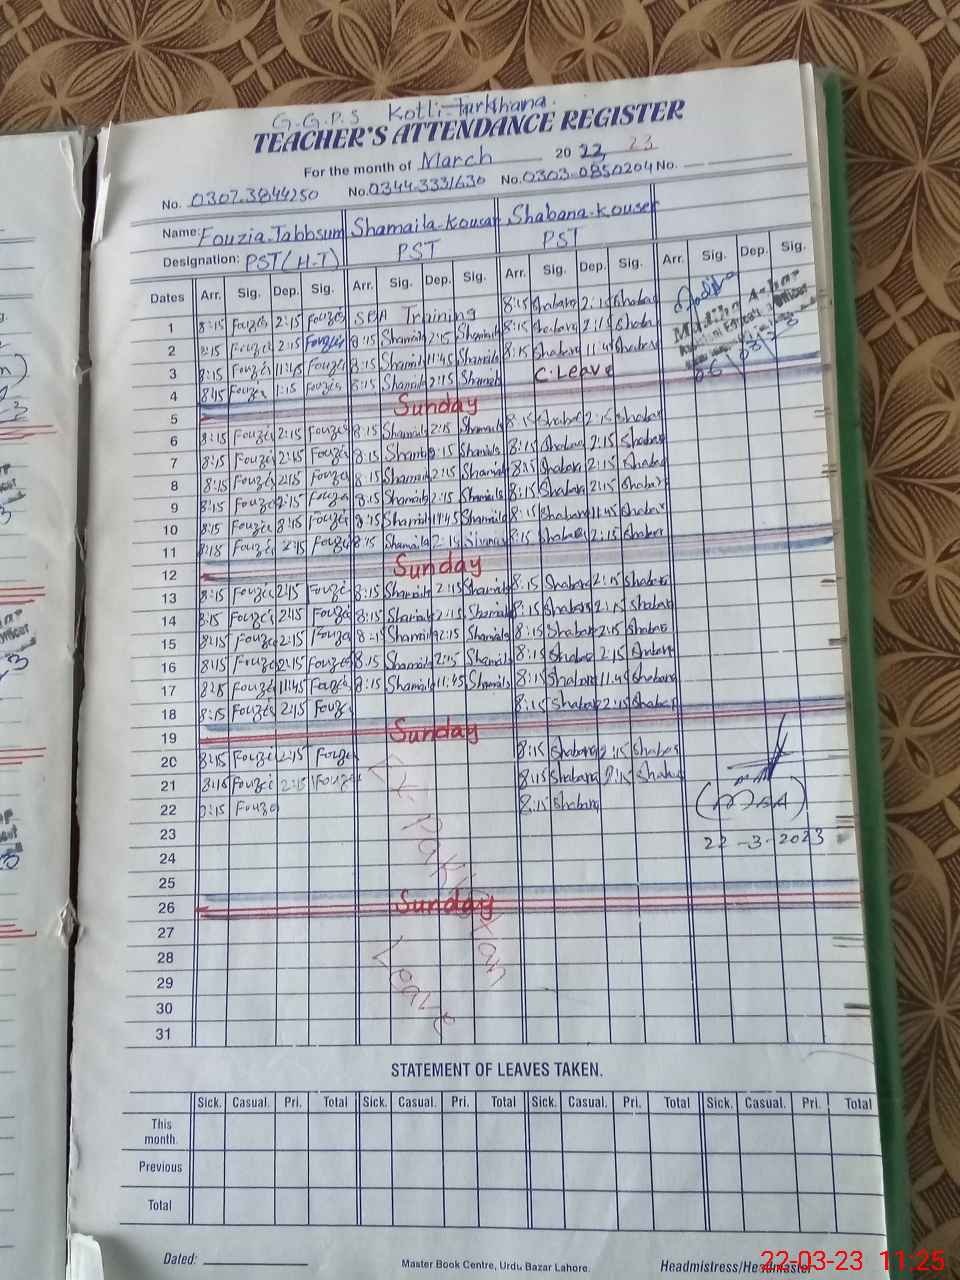 G.G.P.S Kotli-Turkhana.
TEACHER'S ATTENDANCE REGISTER
For the month of March 2022 23
No. 0307-3844250 No. 0344-3331630 No. 0303-0850204 No.
Name: Fouzia-Tabbsum Shamaila-Kousar Shabana-kouser
Designation: PST(H-T) PST PST
Dates Arr. Sig. Dep. Sig. Arr. Sig. Dep. Sig. Arr. Sig. Dep. Sig. Arr. Sig. Dep. Sig.
1 8:15 Fouzia 2:15 Fouzia Training 8:15 Shabana 2:15 Shabana
2 2:15 8:15 Shamaila 2:15 Shamaila 8:15 Shabana 2:15
3 8:15 Fouzia 11:45 Fouzia 8:15 Shamaila 11:45 Shamaila 8:15 Shabana 11:45
4 Fouzia 1:15 Fouzia 8:15 Shamaila 2:15 Shamaila C.Leave
5 Sunday
6 8:15 Fouzia 2:15 Fouzia 8:15 Shamaila 2:15 Shamaila 8:15 Shabana 2:15 Shabana
7 8:15 Fouzia 2:15 Fouzia 8:15 Shamaila 8:15 Shabana 2:15 Shabana
8 8:15 Fouzia 2:15 Fouzia 8:15 Shamaila 2:15 Shamaila Shabana 2:15 Shabana
9 8:15 Fouzia 2:15 8:15 Shamaila 2:15 Shamaila 8:15 Shabana 2:15 Shabana
10 8:15 Fouzia Fouzia 8:15 Shamaila 11:45 Shamaila 8:15 Shabana 11:45 Shabana
11 Fouzia 2:15 Fouzia 8:15 Shamaila 2:15 8:15 Shabana 2:15 Shabana
12 Sunday
13 8:15 Fouzia 2:15 Fouzia 8:15 Shamaila 2:15 Shamaila 8:15 Shabana 2:15 Shabana
14 8:15 Fouzia 2:15 Fouzia 8:15 Shamaila 2:15 Shamaila 8:15 Shabana 2:15 Shabana
15 8:15 Fouzia 2:15 Fouzia 8:15 Shamaila 2:15 Shamaila 8:15 Shabana 2:15 Shabana
16 8:15 Fouzia 2:15 Fouzia 8:15 Shamaila 2:15 Shamaila 8:15 Shabana 2:15
17 8:15 Fouzia 11:45 Fouzia 8:15 Shamaila 11:45 Shamaila 8:15 Shabana 11:45 Shabana
18 8:15 Fouzia 2:15 Fouzia 8:15 Shabana 2:15 Shabana
19 Sunday
20 8:15 Fouzia 2:15 Fouzia 8:15 Shabana 2:15 Shabana
21 8:15 Fouzia 2:15 Fouzia 8:15 Shabana 2:15 Shabana
22 8:15 Fouzia 8:15 Shabana
Ex-Pakistan Leave
23
22-3-2023
24
25
26 Sunday
27
28
29
30
31
STATEMENT OF LEAVES TAKEN.
Sick. Casual. Pri. Total Sick. Casual. Pri. Total Sick. Casual. Pri. Total Sick. Casual. Pri. Total
This month.
Previous
Total
Dated:
Master Book Centre, Urdu Bazar Lahore.
Headmistress/Headmaster
22-03-23 11:25